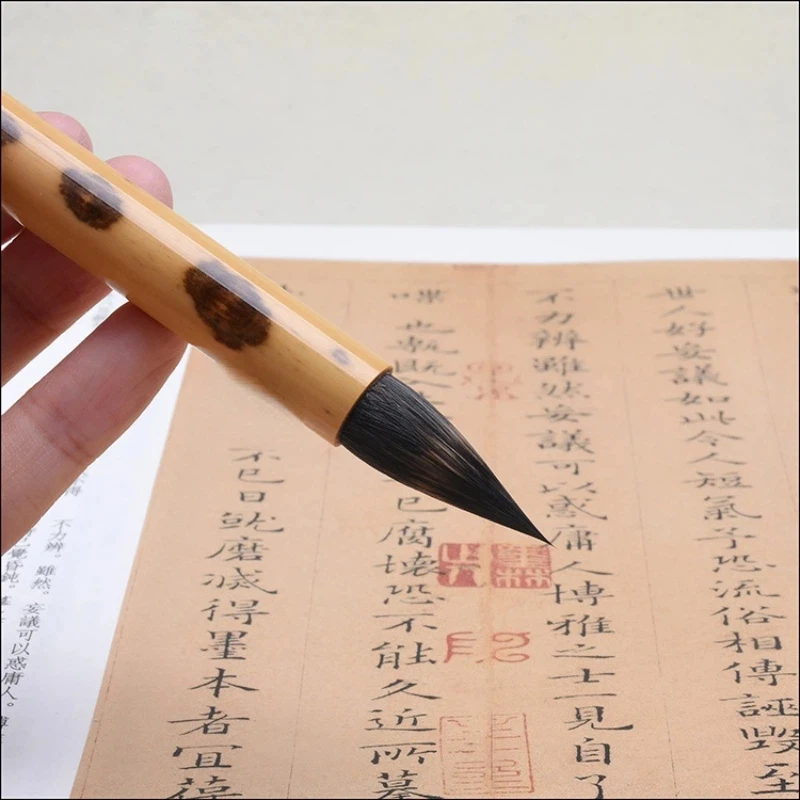 世人好妄議如此令人短氣予恐流俗相傳誣毀至
不力辨雖然妄議可以惑庸人博雅之士一見自了
也甎既 已腐壞恐不能久近所摹
不已日就磨滅得墨本者宜葆
不力辨。雖然。妄議可以惑庸人。